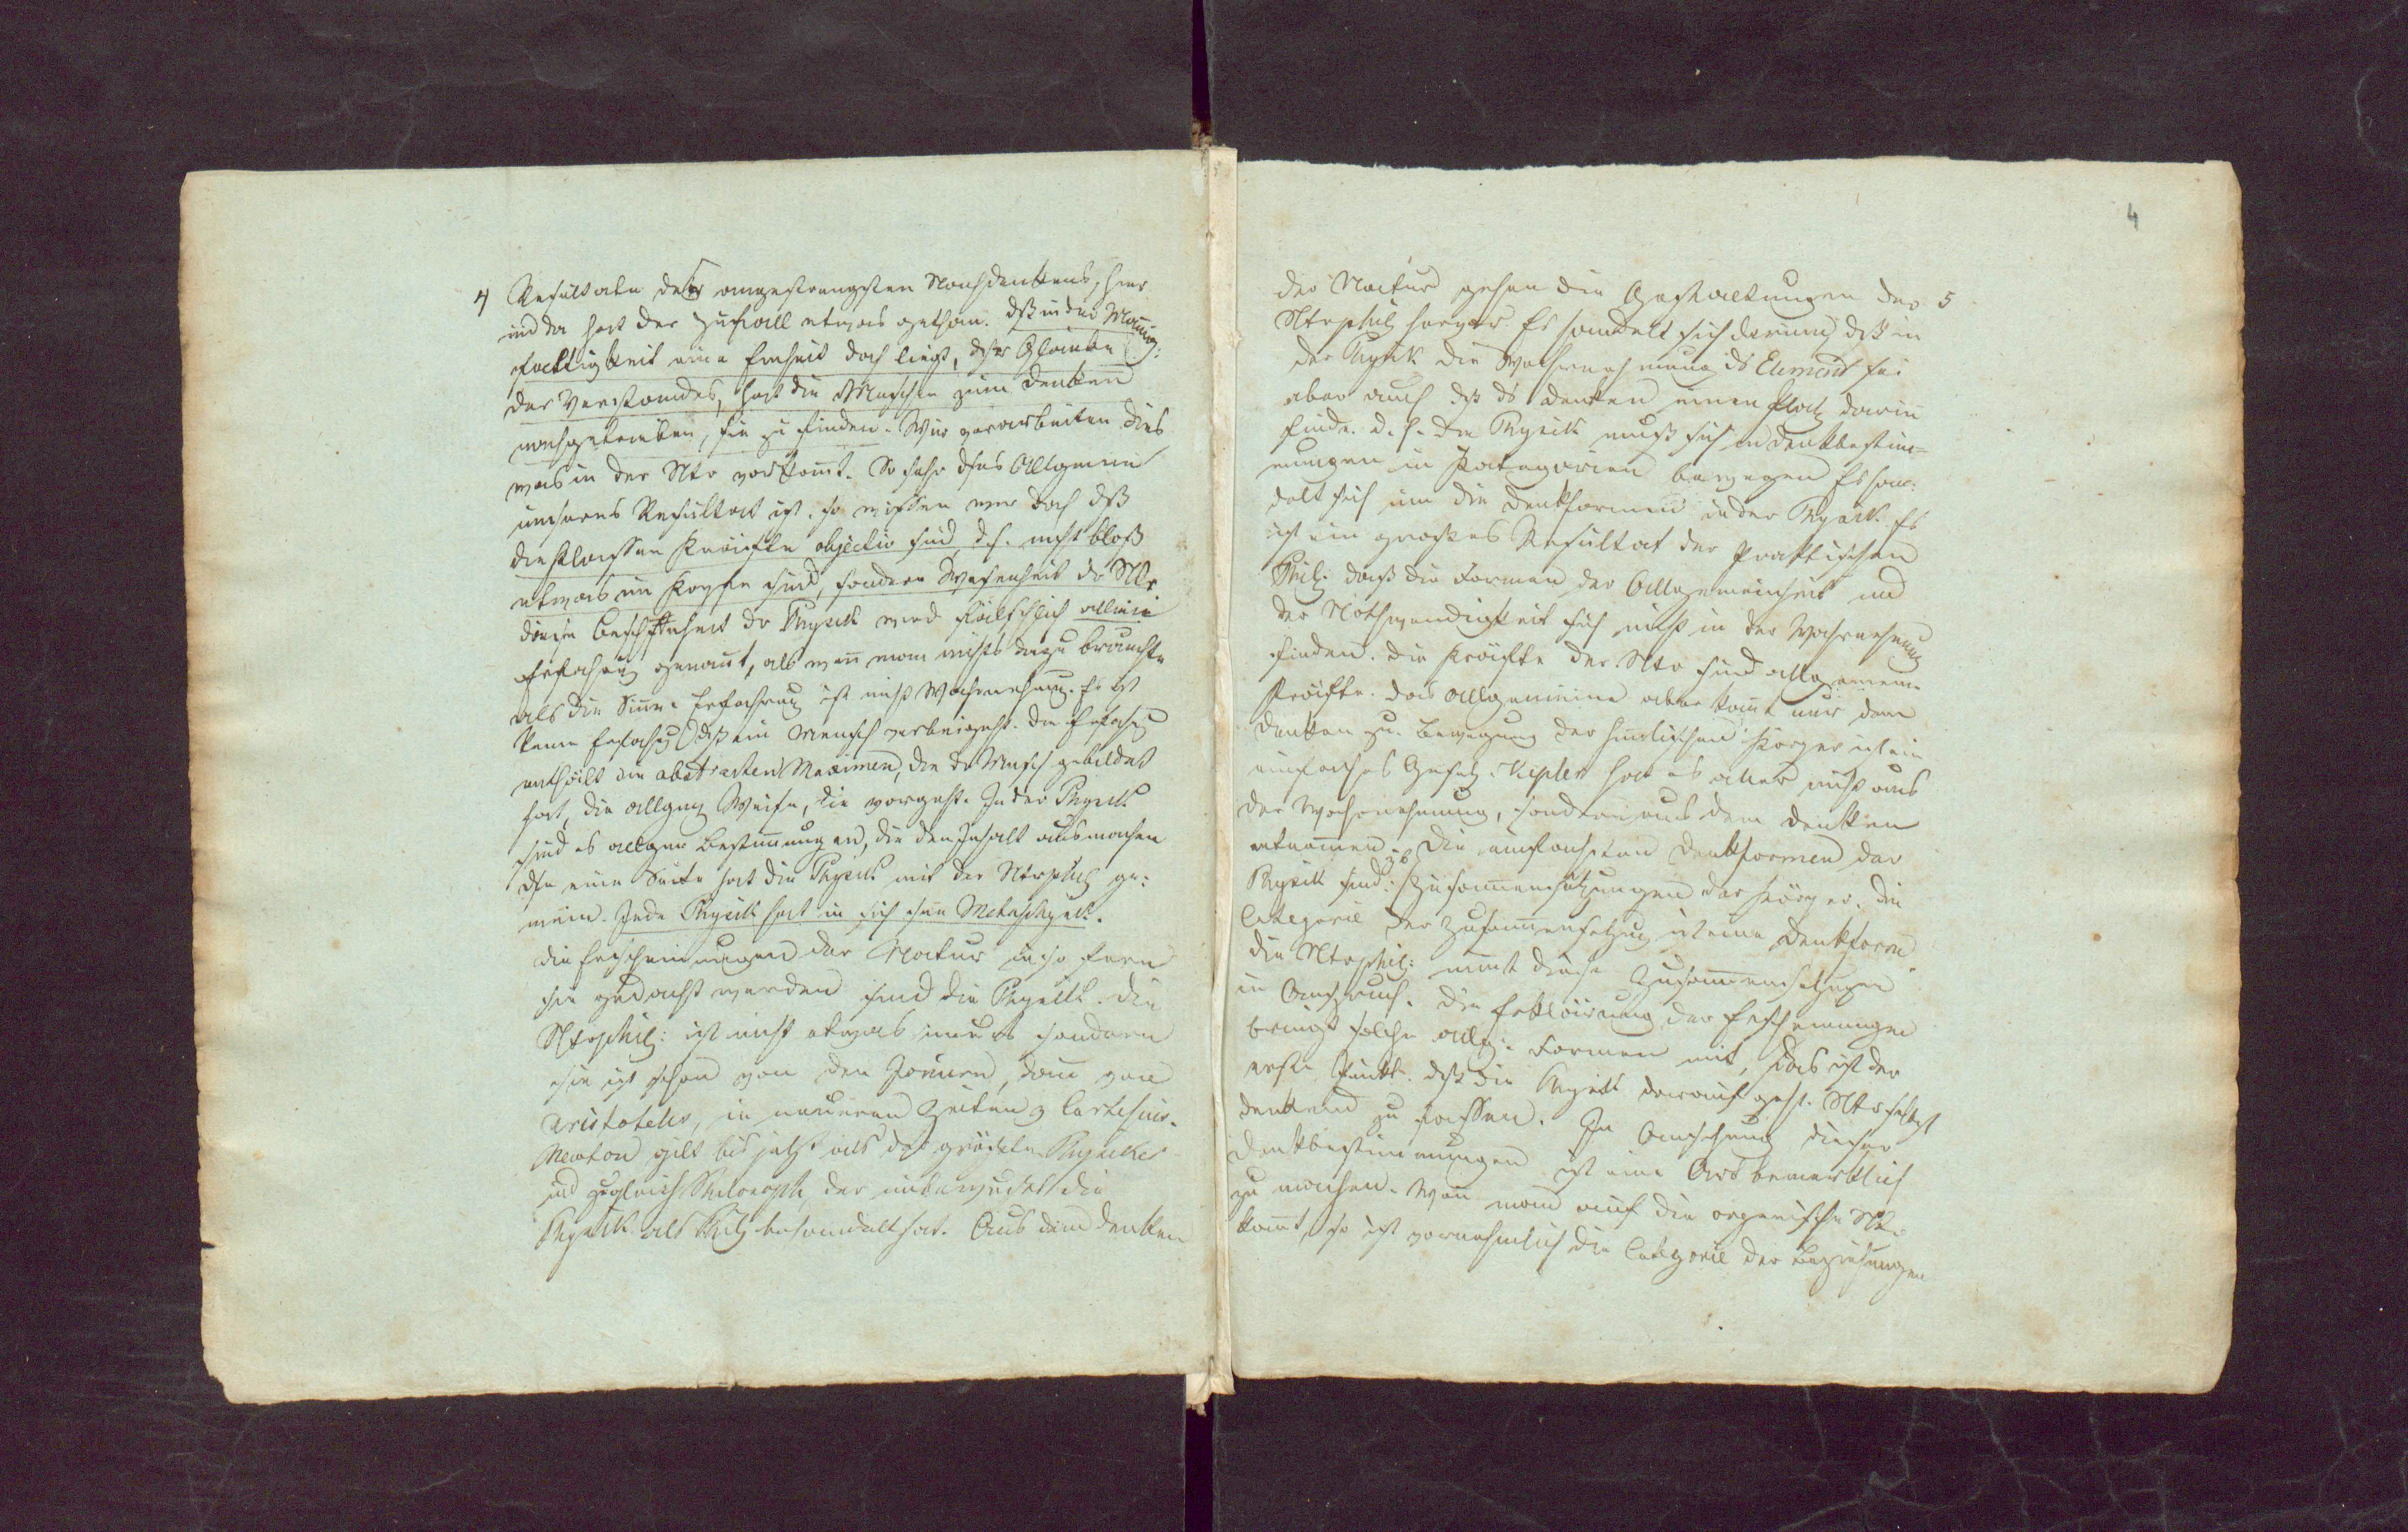 4
4 Resultate des angestrengsten Nachdenkens, hier
und da hat der Zufall etwas gethan. dß in der Mannig:
faltigkeit eine Einheit doch liegt, dsr Glaube
des Verstandes, hat die Menschen zum Denken
nachgetrieben, sie zu finden. Wir verarbeiten dies
was in der Ntr vorkomt. So sehr dses Allgemein
unseres Resultat ist, so wissen wir doch dß
die Klassen Kräfte objectiv sind, d.h. nicht bloß
etwas im Kopfe sind, sondern Wesenheit dr Ntr
diese Beschffenheit dr Physik wird fälschlich allein
Erfahrug genant, als wenn man nichts dazu brauchte
als die Sinne. Erfahrung ist nicht Wahrnehmug. Es ist
keine Erfahrg dß ein Mensch vorbeigeht. die Erfahrg
enthält die abstrakten Maximen, die dr Mensch gebildet
hat, die allgem Weise, die vorgeht. In der Physik
sind es allgem Bestimungen, die den Inhalt ausmachen
dse eine Seite hat die Physik mit der Ntrphil ge:
mein. Jede Physik hat in sich ihre Metaphysik.
die Erscheinungen der Natur in so fern
sie gedacht werden sind die Physik. die
Ntrphil: ist nicht etwas neues sondern
sie ist schon von den Joniern, dann von
Aristoteles, in neueren Zeiten v Cartesius.
Newton gilt bis jetzt als der größte Physiker
und zugleich Philosoph, der unbewußt die
Physik als Phil behandelt hat. Aus dem Denken
der Natur gehen die Gestaltungen der 5
Ntrphil hervor. Es handelt sich darum, dß in
der Physik die Wahrnehmung ds Element sei
aber auch dß ds Denken einen Platz darin
finde. d.h. die Physik muß sich in Denkbestim=
mungen in Kategorien bewegen Es han:
delt sich um die Denkformen in der Physik. Es
ist ein großes Resultat der Praktischen
Phil: daß die Formen der Allgemeinheit und
der Nothwendigkeit sich nicht in der Wahrnehmung
finden. die Kräfte der Ntr sind allgemeine
Kräfte. das allgemeine aber komt nur dem
Denken zu. Bewegung der himlischen Körper ist ein
einfaches Gesetz. Kepler hat es aber nicht aus
der Wahrnehmung, sondern aus dem Denken
entnomen. Die einfachsten Denkformen der
Physik sind: z b Zusammensetzungen der Körper. die
Categorie der Zusammensetzug ist eine Denkform
die Ntrphil: nimt diese Zusammensetzungen
in Anspruch. die Erklärung der Erscheinungen
bringt solche allg: Formen mit, das ist der
erste Punkt. dß die Physik darauf geht. Ntr selbst
denkend zu fassen. In Ansehung dieser
Denkbestimmungen ist eine Art bemerklich
zu machen. Wenn man auf die organische Nt:
komt, so ist vornehmlich die Categorie der Beziehungen